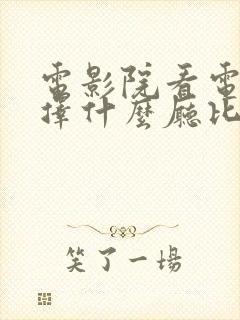 電影院看電
擇什麼廳比
笑了一場